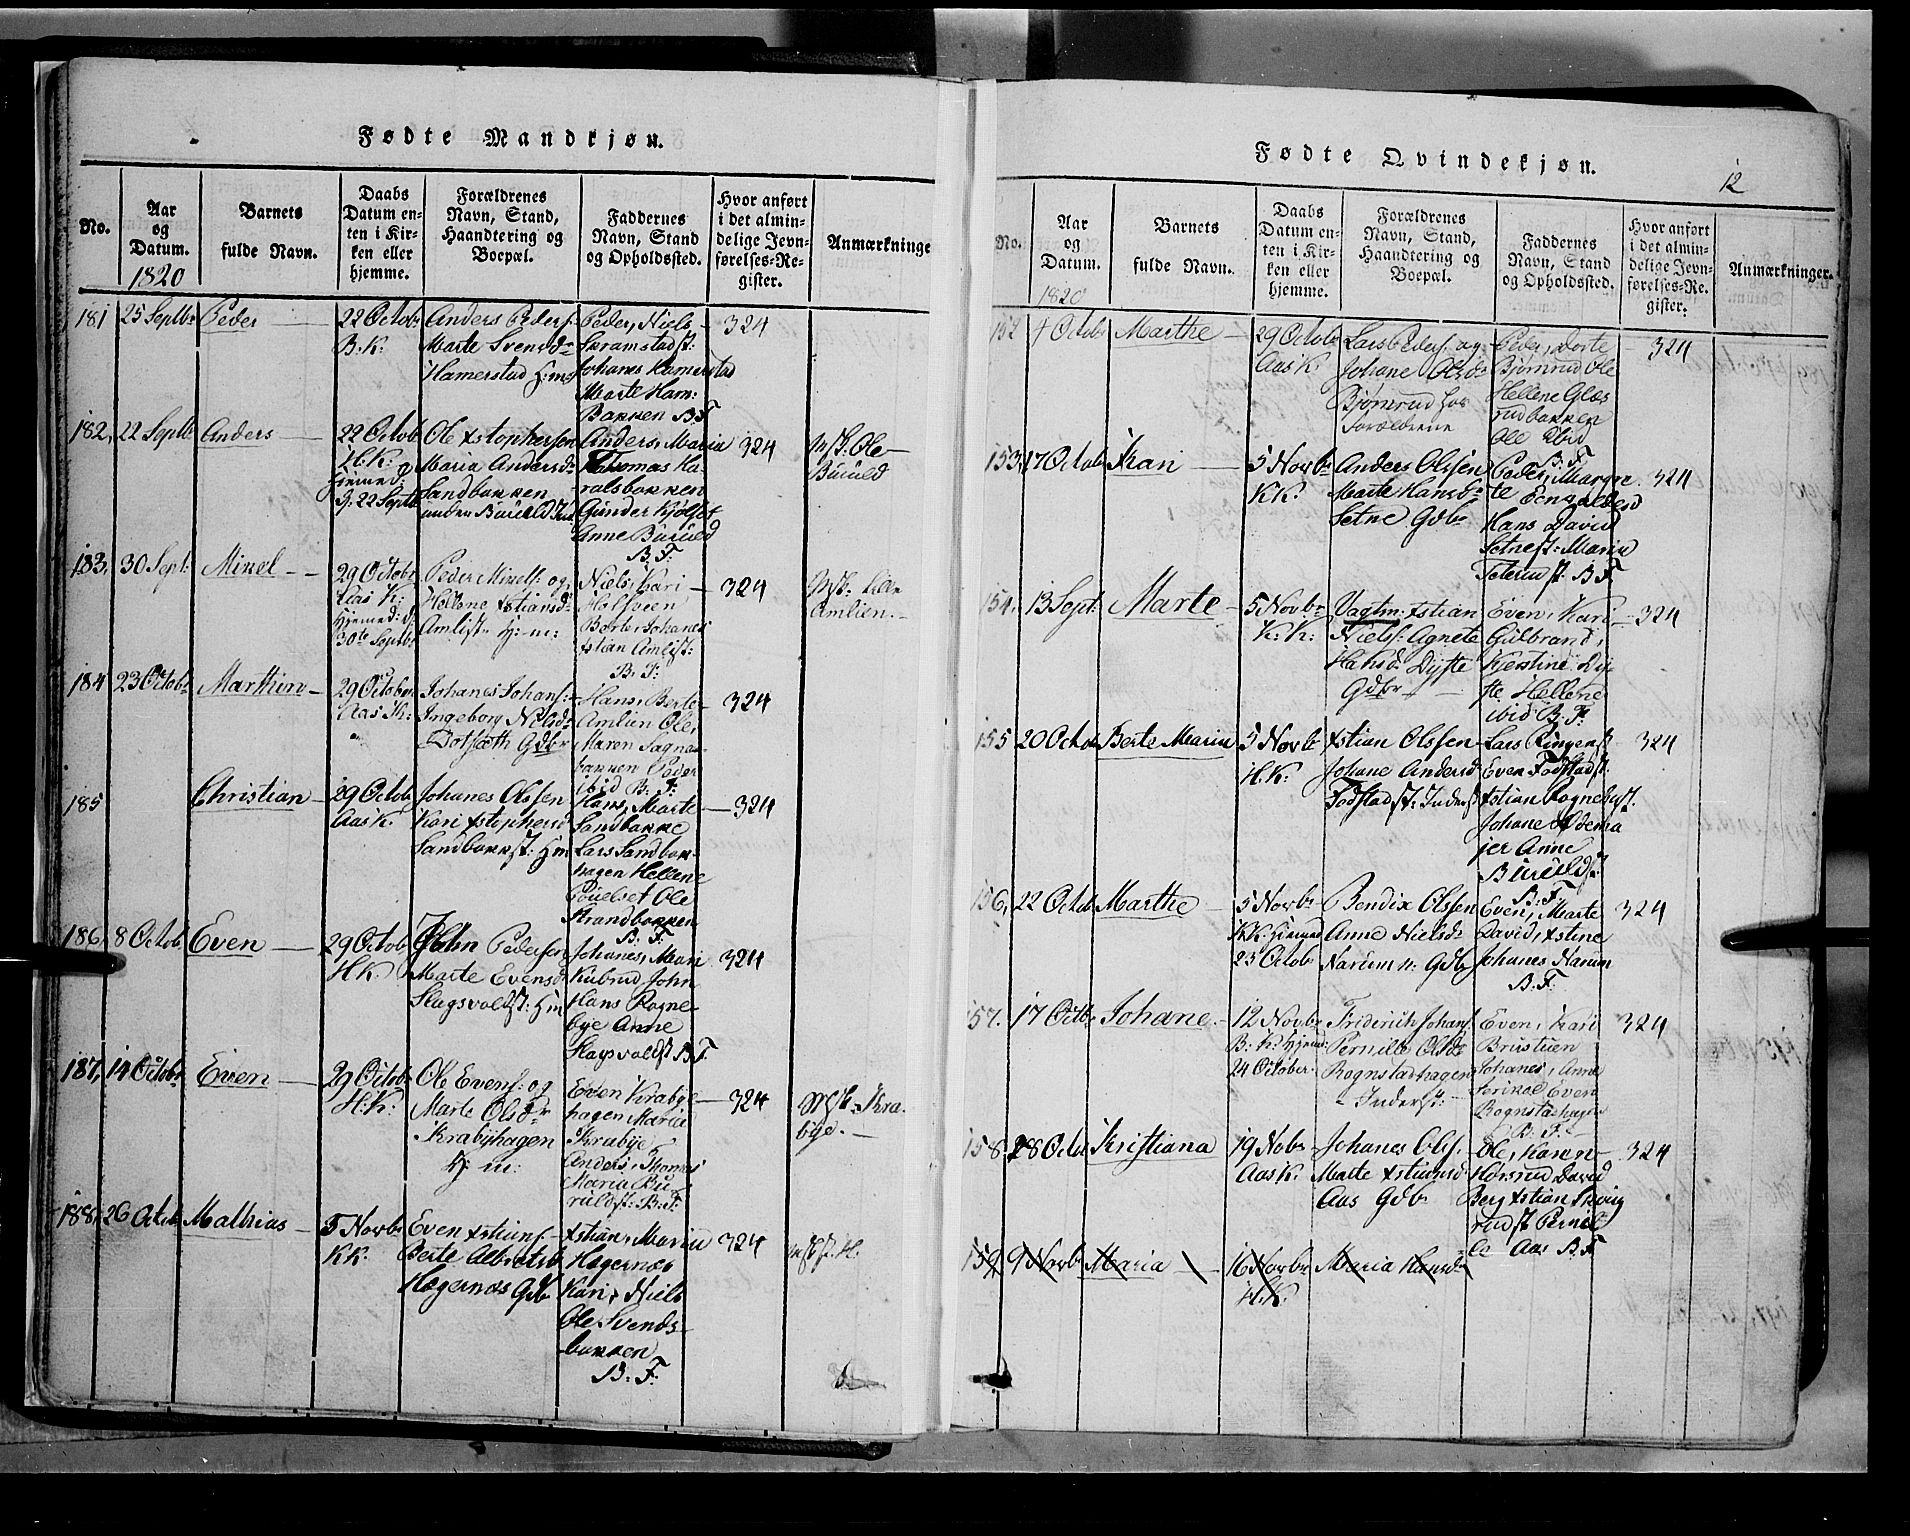 Fødte Mandkjøn.
No.
Aar
og
Datum.
1820
Barnets
fulde Navn.
Daabs
Datum en-
ten i Kir-
ken eller
hjemme.
Forældrenes
Navn, Stand,
Haandtering og
Boepæl.
Faddernes
Navn, Stand
og Opholdssted.
Hvor anført
i det almin-
delige Jevn-
førelses-Re-
gister.
Anmærkninge
181
25 Septbr
Peder
22 Octobr
B. K:
Anders Peders:
Marte Svensdr
Hamerstad H:m
Peder, Niels
Saramstadst:
Johanes Hamerstad
Marte Ham:
Bakken B F
324
182,
22 Septbr
Anders
22 Octob
H. K:
Hiemed:
d. 22 Septbr
Ole Xstophersen
Maria Andersdr
Sandbakken
under Buruld
Anders, Maria
Thomas Ha-
ralsbakken
Gunder Kjølset
Anne Buruld
B: F:
324
Ole
Buruld
183,
30 Sept:
Mikel
29 Octobr
Aas K:
Hjemed: d:
30te Septbr
Peder Mikels: og
Hellene Xstiansdr
Amlist: H: m:
Niels, Kari
Holsveen
Borte, Johanes
Xstian Amlist:
B: F:
324
Lille
Amlien.
184
23 Octobr
Marthin
29 October
Aas K:
Johanes Johans:
Ingeborg Nilsdr
Dotsæth Gdbr
Hans, Berte
Amlien Ole,
Maren Sogna-
bakken Peder
ibid B: F:
324
185
Christian
29 Octob
Aas K:
Johanes Olssen
Kari Xstophersd
Sandbakkst: Hm
Hans, Marte
Sandbakke
Lars Sandbak-
hagen Hellene
Pouelset Ole
Strandbakken
B: F:
324
186,
8 Octob
Even
29 Octob
H K:
John Pedersen
Marte Evensd
Slagsvoldst: Hm
Johanes, Mari
Kubrud John
Hans Rogne-
bye Anne
Slagsvoldst B F.
324
187,
14 Octobr
Even
29 Octobr
H. K:
Ole Evens: og
Marte Olsdr
Krabyhagen
H: m:
Even Krabye
hagen Maria
Krabye
Anders, Thomas
Maria Bu-
ruldst: B: F:
324
Kra-
bye.
188,
26 Octob
Mathias
5 Novbr
K K:
Even Xstians
Berte Albretsd
Hægernæs Gdb
Xstian, Maria
Hægernæs
Kari, Niels
Ole Svends-
bakken
B: F:
324
Fødte Qvindekjøn.
12
No.
Aar
og
Datum.
1820
Barnets
fulde Navn.
Daabs
Datum en-
ten i Kir-
ken eller
hjemme.
Forældrenes
Navn, Stand,
Haandtering og
Boepæl.
Faddernes
Navn, Stand
og Opholdssted.
Hvor anført
i det almin-
delige Jevn-
førelses-Re-
gister.
Anmærkninger.
152
4 Octob
Marthe
29 Octobr
Aas K:
Lars Peders: og
Johane Olsdr
Bjørnrud hos
Forældrene
Peder, Dorte
Bjørnrud Ole
Hellene Glæs
rudbakken
Ole ibid
B: F
324
153,
17 Octob
Kari
5 Novbr
K K:
Anders Olssen
Marte Hansdr
Setne Gdbr
Peder, Margre
te
Hans David
Setnest: Maria
Teterudst: B F
324
154,
13 Sept:
Marte
5 Novbr
K: K:
Vagtm: Xstian
Niels: Agnete
Hansd Dyste
Gdbr
Even, Kari
Gulbrand,
Kjerstine Dy-
ste Hellene
ibid B. F:
324
155
20 Octob
Berte Maria
5 Novbr
H. K:
Xstian Olssen
Johane Andersd
Fodstadst: Inderst
Lars Ringenst
Even Fodstadst:
Xstian Rognebyst.
Johane Odema
jer Anne
Buruldst:
B: F
324
156,
22 Octob
Marthe
5 Novbr
K K: hiemed
25 Octob
Bendix Olssen
Anne Nielsdr
Narum n: Gdb
Even, Marte
David, Xstine
Johanes Narum
B. F:
324
157.
17 Octbr
Johane
12 Novbr
B: K: Hjemed:
24 October
Friderich Johans
Pernille Olsdr
Rognstadhagen
Inderst:
Even, Kari
Brustuen
Johanes, Anne
Even
Rognstadhagen
B: F:
324
158,
28 Octob
Kristiana
19 Nobr
Aas K:
Johanes Ols.
Marte Xstiansd
Aas Gdbr
Ole, Karen
Hørsrud David
Berg Xstian Skiøng
rudst Pernil-
le Aas B F
324
159
9 Novbr
Maria
16 Novbr
H. K:
Maria Hansdr